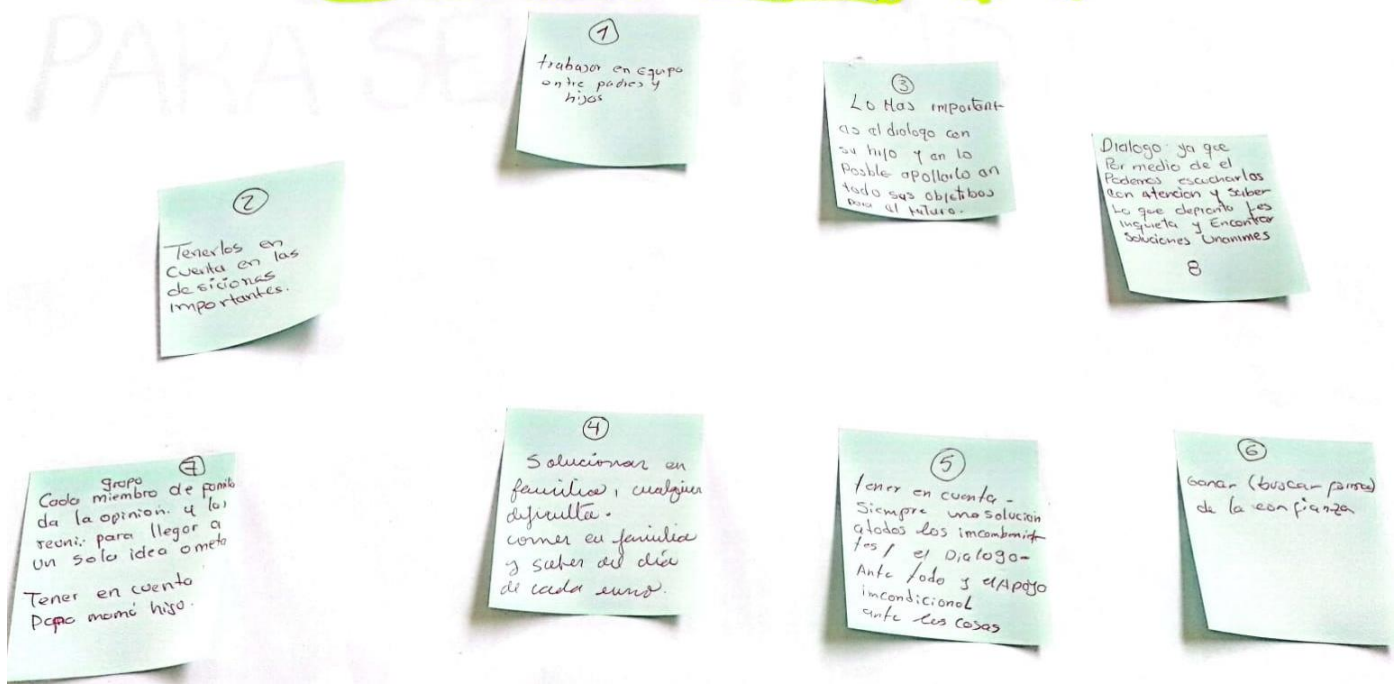 PARA SE
①
trabajar en Equipo
entre padres y
hijos
③
Lo Mas important
es el dialogo con
su hijo y en lo
Posble apollarlo en
todo sus objetibos
para el futuro.
Dialogo ya que
Por medio de el
Podemos escucharlos
con atencion y saber
Lo que depronto Les
inquieta y Encontrar
Soluciones Unanimes
8
②
Tenerlos en
cuenta en las
desiciones
importantes.
⑦
grupo
Cada miembro de
da la opinion. y los
reuni. para llegar a
un sola idea o meta
Tener en cuenta
Papa mamá hijo.
④
Solucionar en
familia, cualquier
dificulta.
comer en familia
y saber del día
de cada euno.
⑤
tener en cuenta -
Siempre una solucion
atodos los
el Dialogo-
Ante todo y el Apoyo
incondicional
ante las cosas
⑥
Ganar (buscar forma)
de la confianza